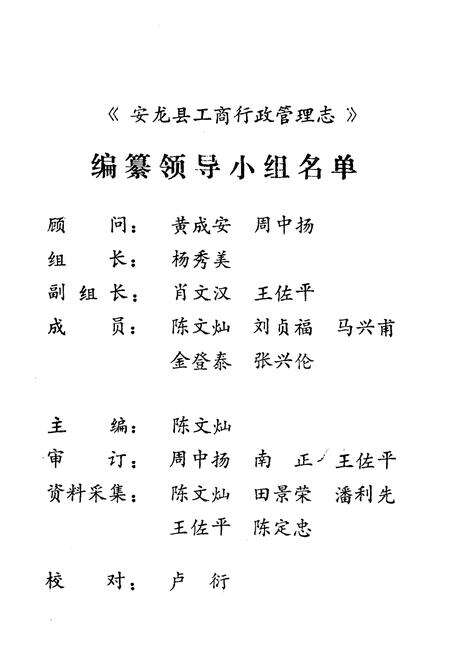 《安龙县工商行政管理志》
编纂领导小组名单
顾 问： 黄成安 周中扬
组 长： 杨秀美
副组长： 肖文汉 王佐平
成 员： 陈文灿 刘贞福 马兴甫
金登泰 张兴伦
主 编： 陈文灿
审 订： 周中扬 南 正 王佐平
资料采集： 陈文灿 田景荣 潘利先
王佐平 陈定忠
校 对： 卢 衍